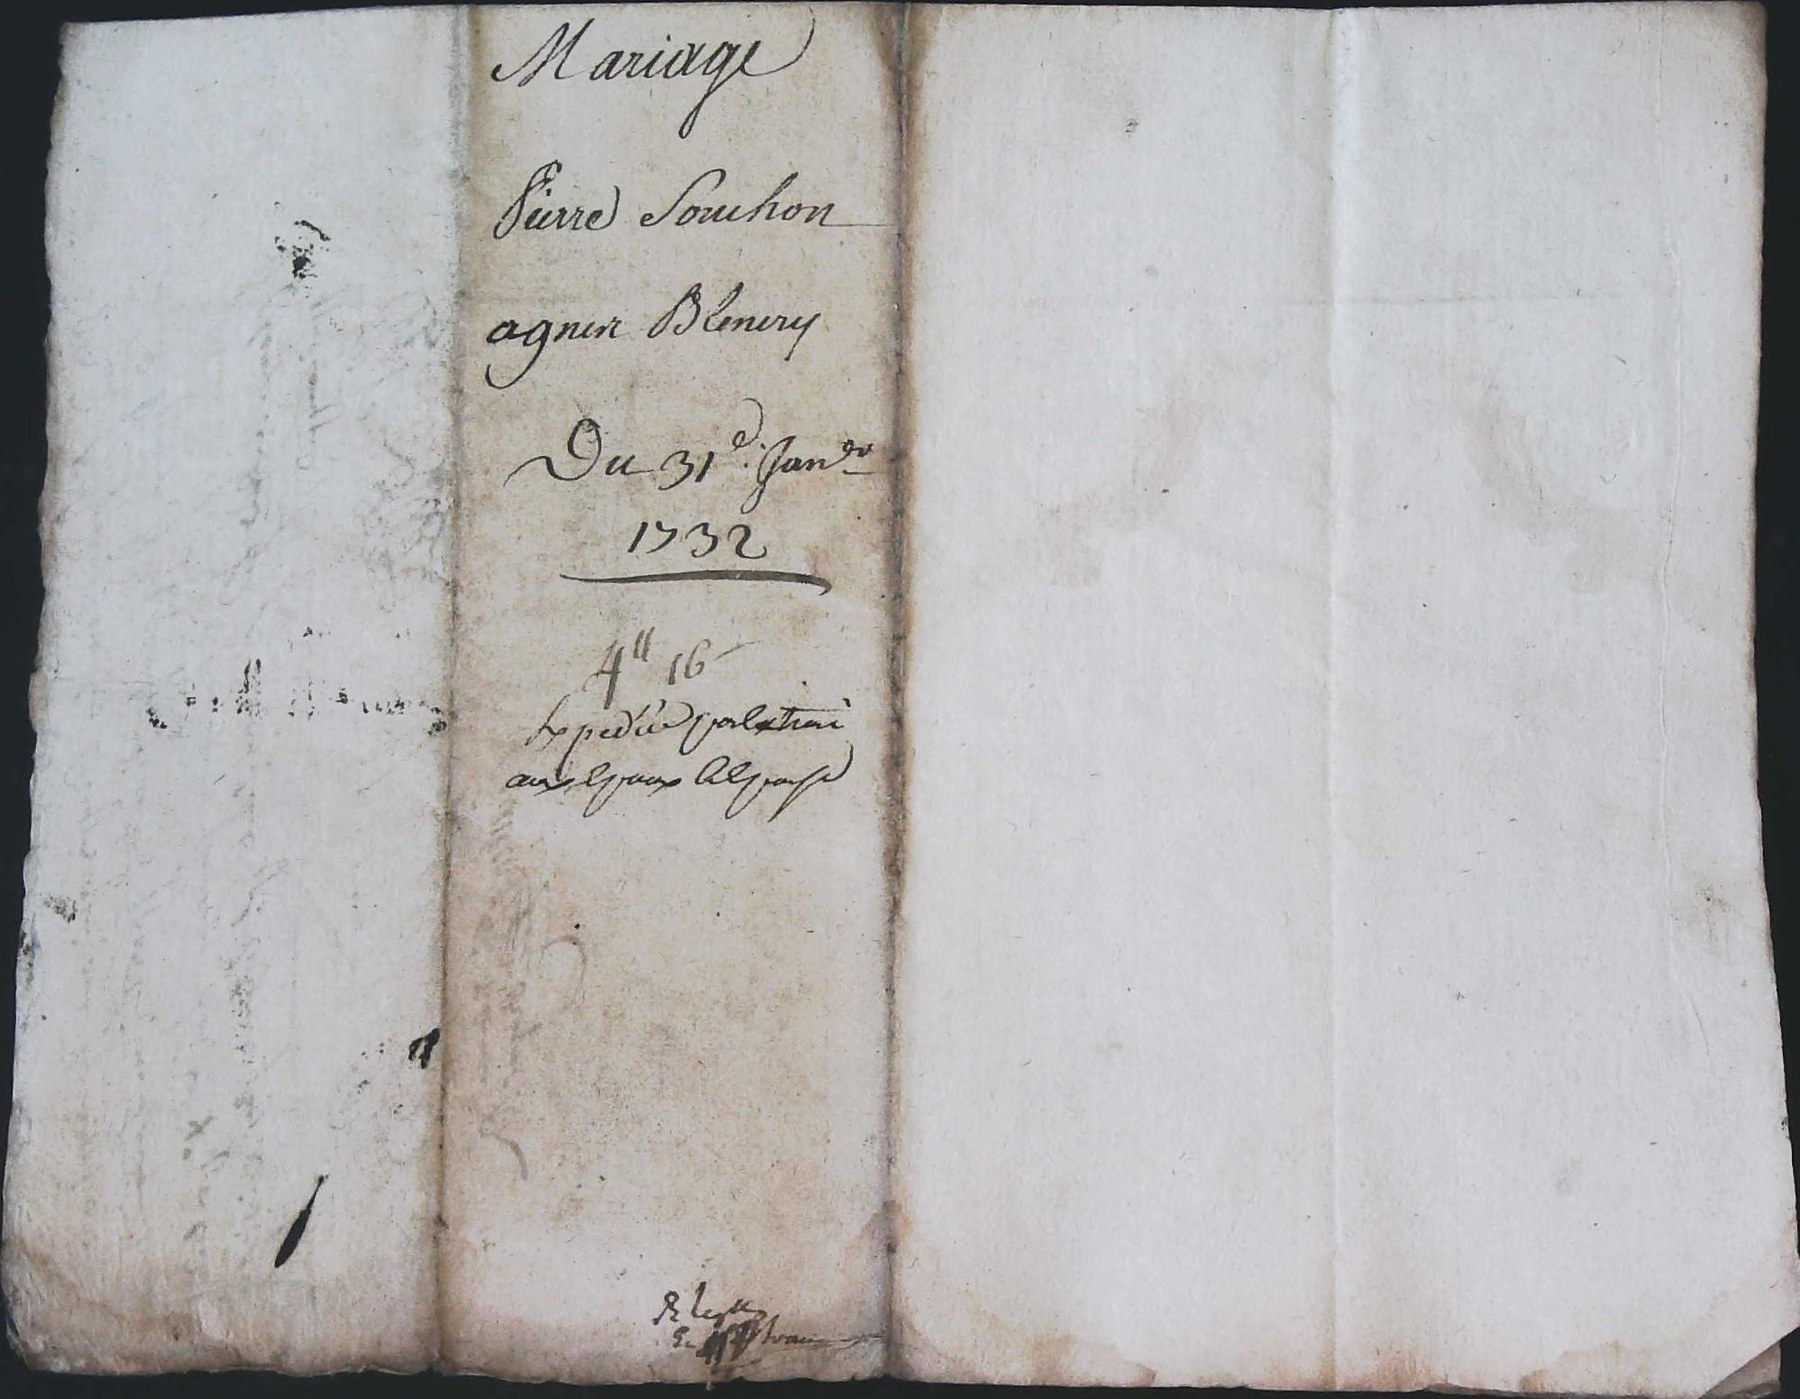 Mariage
Pierre Souchon
agnen Blenery
Du 31e Janer
1732
4ll 16
Expediée par extrai
aux epoux